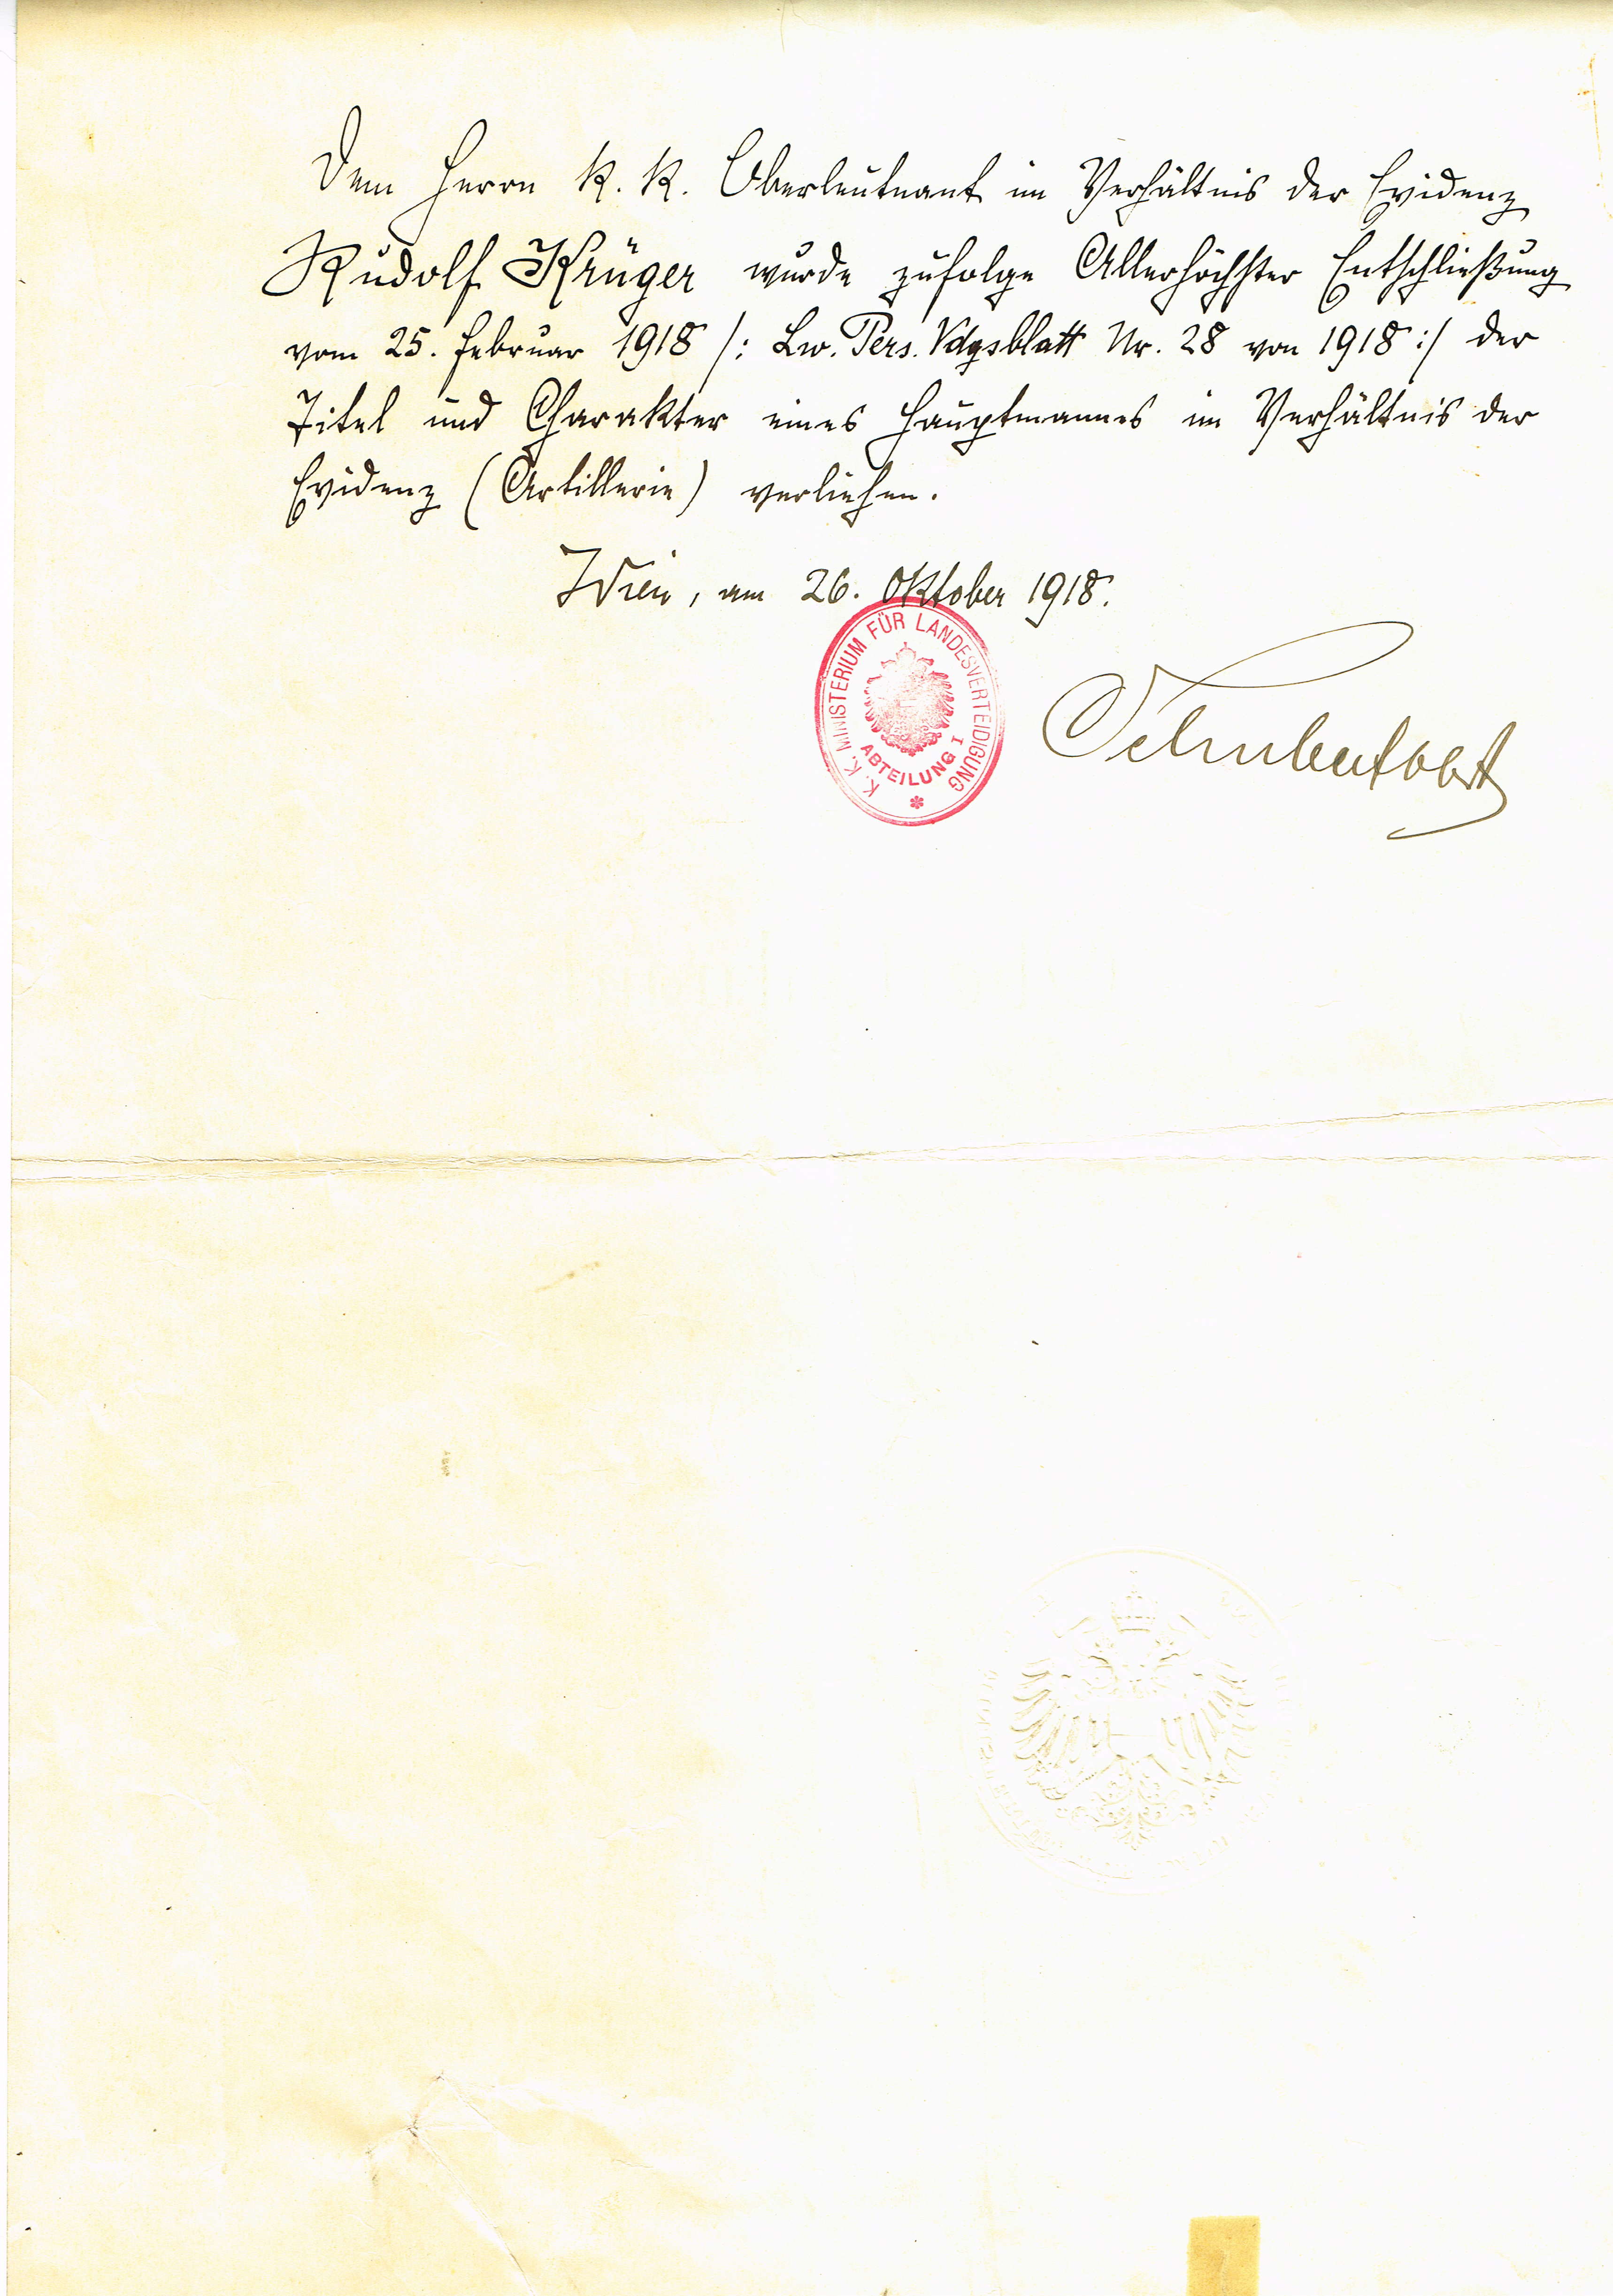 Dem Herrn k. k. Oberleutnant im Verhältnis der Evidenz
Rudolf Krüger wurde zufolge Allerhöchster Entschließung
vom 25. Februar 1918 /: Lw. Pers. Vdgsblatt Nr. 28 von 1918 :/ der
Titel und Charakter eines Hauptmannes im Verhältnis der
Evidenz (Artillerie) verliehen.
Wien, am 26. Oktober 1918.
K. K. MINISTERIUM FÜR LANDESVERTEIDIGUNG
ABTEILUNG I